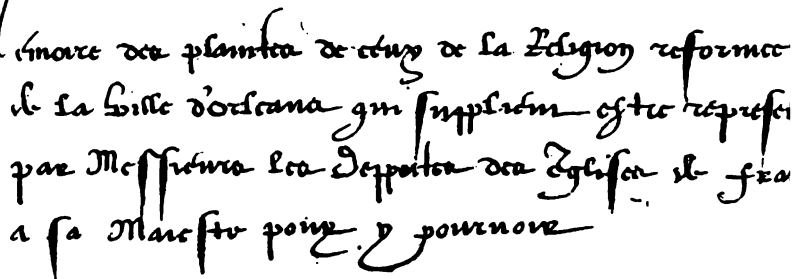 emoire des plaintes de ceux de la Religion reformee
de la ville d'orleans qui supplient estre represe
par Messieurs les Depputes des Eglises de fra
a sa Maieste pour y pourvoir